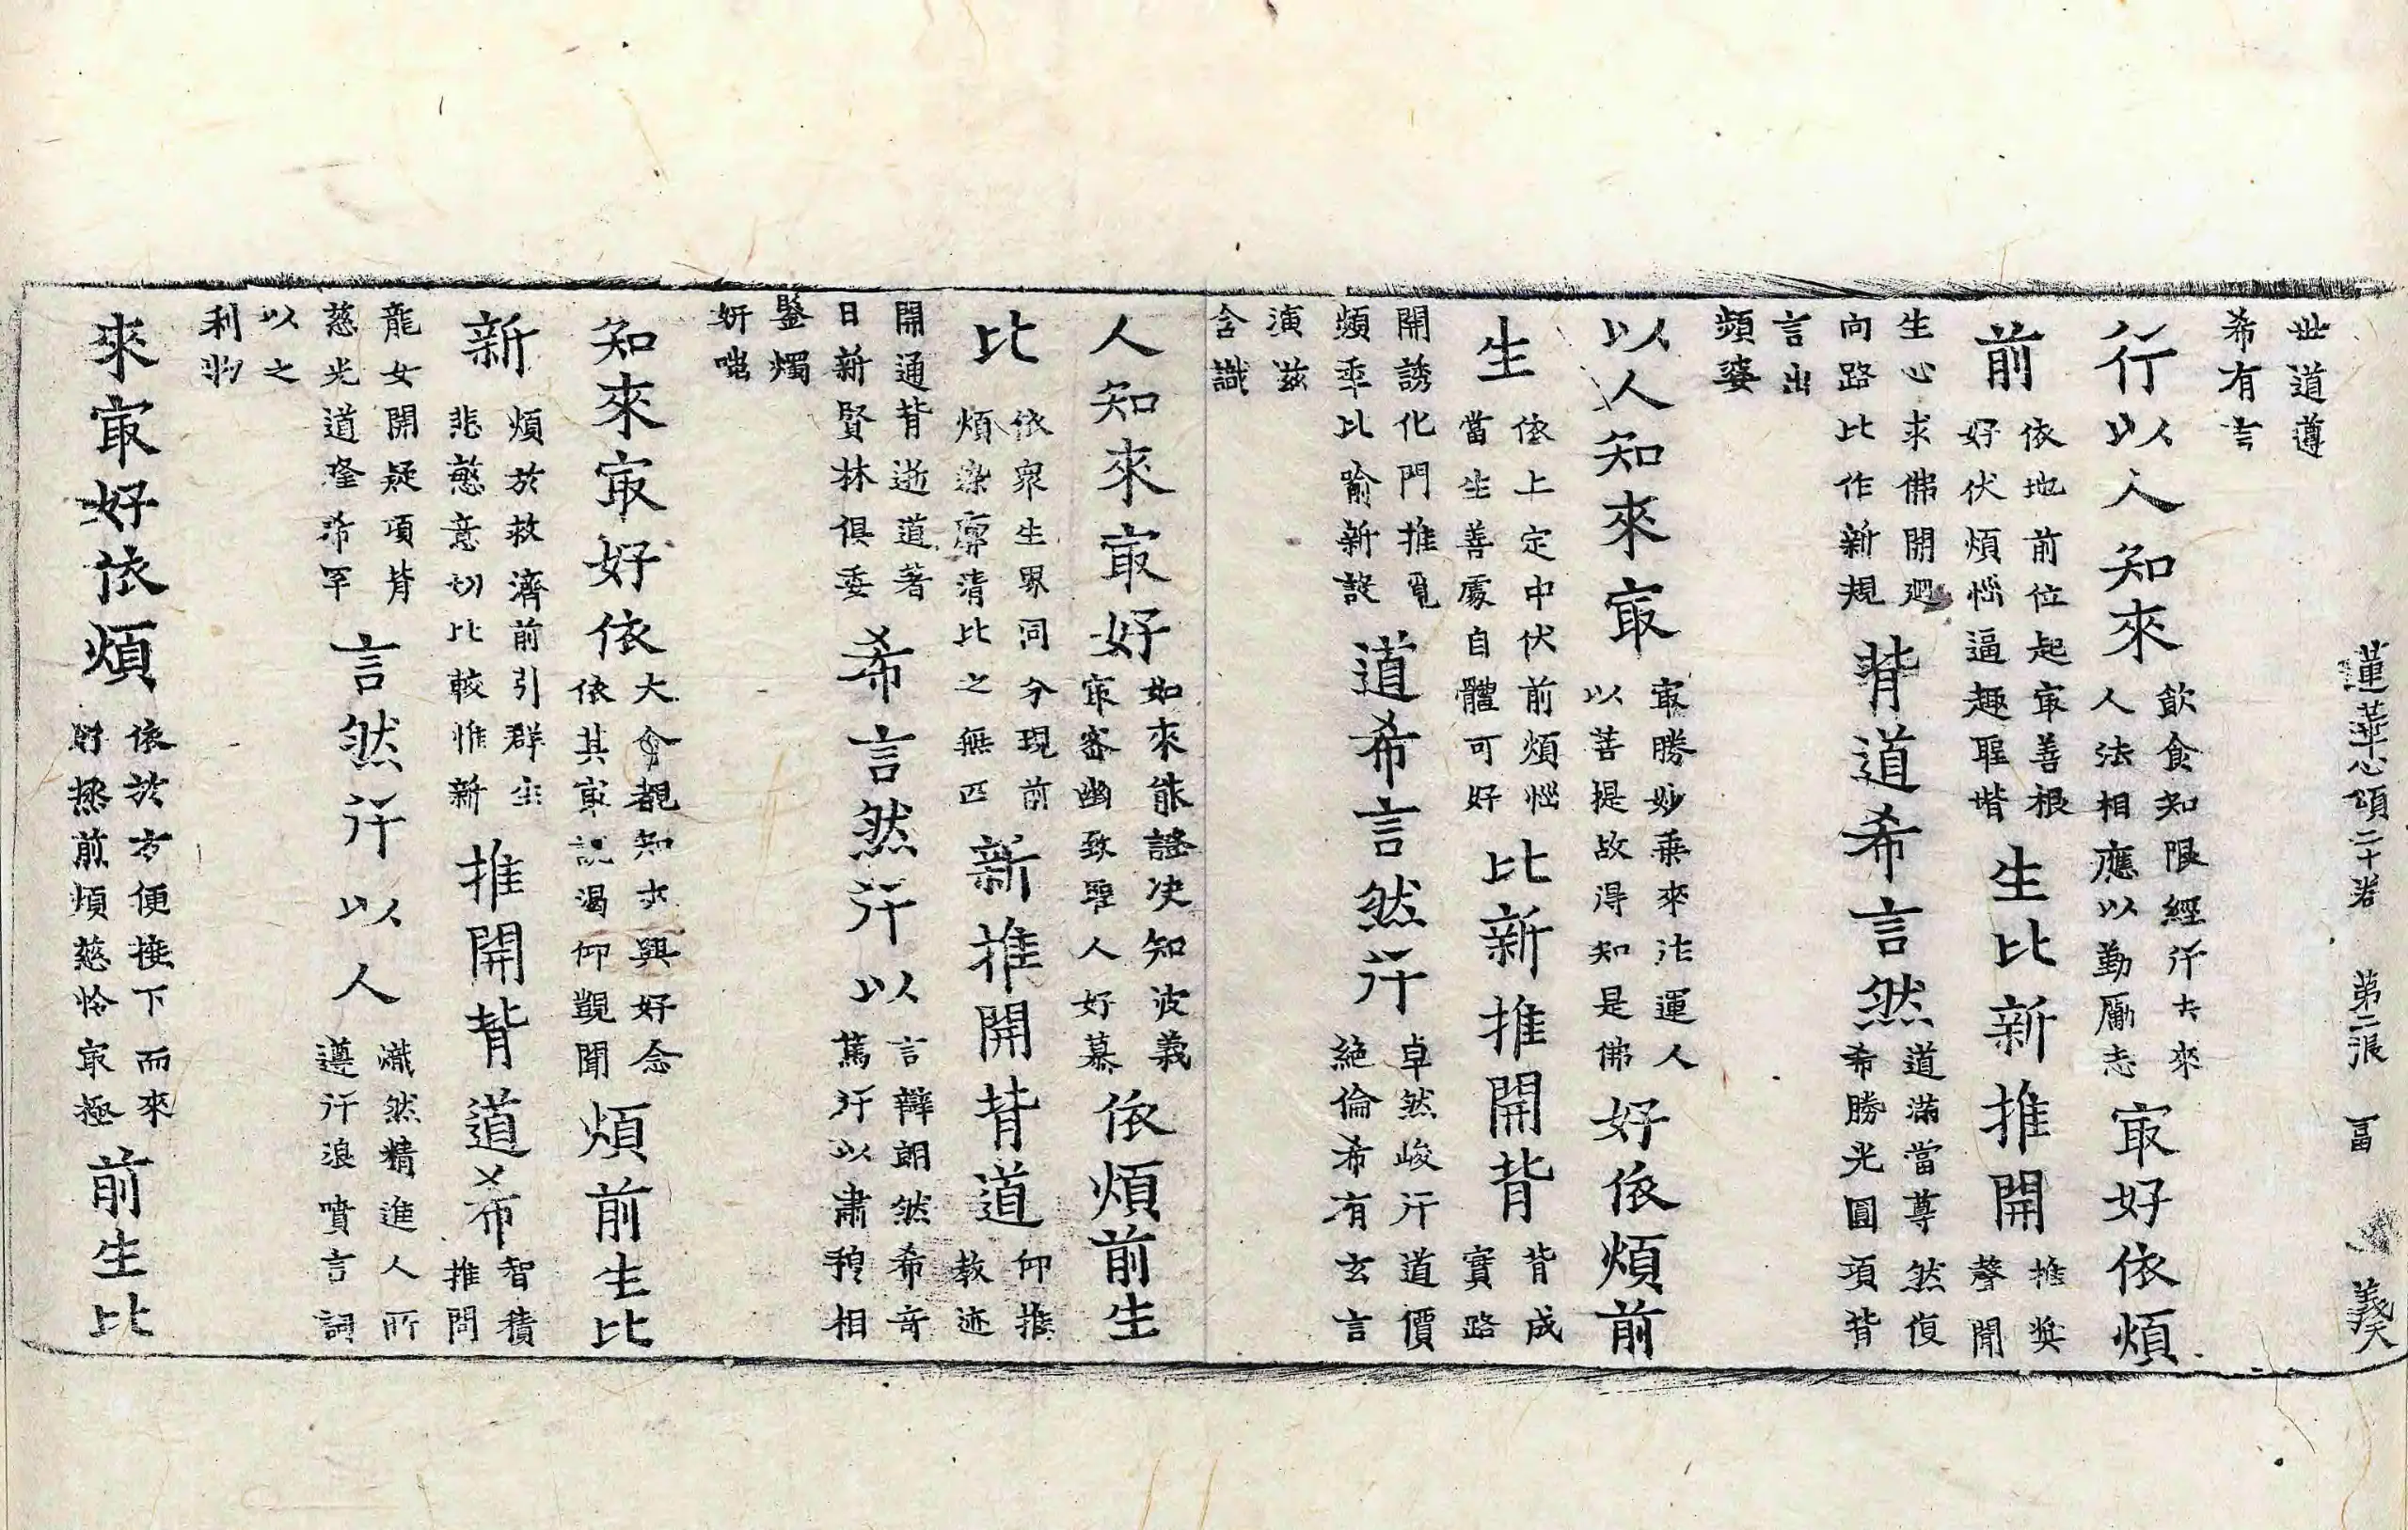 蓮華心頌二十卷 第二張 冨 義天
世道遵
希有言
行以人知來 飲食知限經行去來 人法相應以勤勵志 㝡好依煩
前 依地前位起㝡善根 好伏煩惱逼趣聖堦 生比新推開 推奬 聲聞
生心求佛開𢌞 向路比作新規 背道希言然 道滿當尊然復 希勝光圓項背
言出
頻婆
以人知來㝡 㝡勝妙乗來沾運人 以菩提故得知是佛 好依煩前
生 依上定中伏前煩惱 當生善處自體可好 比新推開背 背成 實路
開誘化門推覔 煩乖比喻新設 道希言然行 卓然峻行道價 絶倫希有玄言
演滋
含識
人知來㝡好 如來能證决知波義 㝡審幽致聖人好慕 依煩前生
比 依衆生界同分現前 煩染廓清比之無匹 新推開背道 仰推 教迹
開通背逝道著 日新賢林俱委 希言然行以 言辯朗然希竒 篤行以肅穆相
鑒燭
妍嗤
知來㝡好依 大會覩知求興好念 依其㝡説渴仰觀聞 煩前生比
新 煩於救濟前引群生 悲慜意切比較惟新 推開背道希 智積 推問
龍女開疑項背 慈光道隆希罕 言然行以人 熾然精進人所 遵行浪噴言詞
以之
利物
來㝡好依煩 依於方便接下而來 財拯前煩慈怜㝡極 前生比